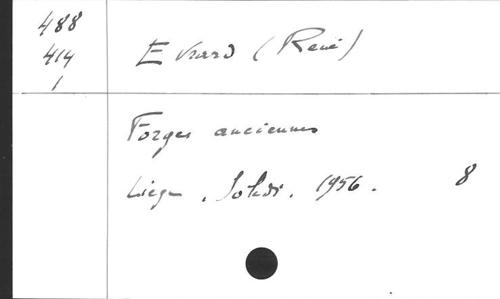 488
414
1
Evrard (René)
Forges anciennes
Liège, Soledi, 1956.
8